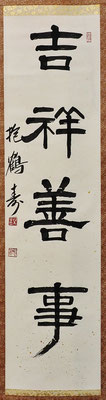 吉祥善事
抱鶴寿